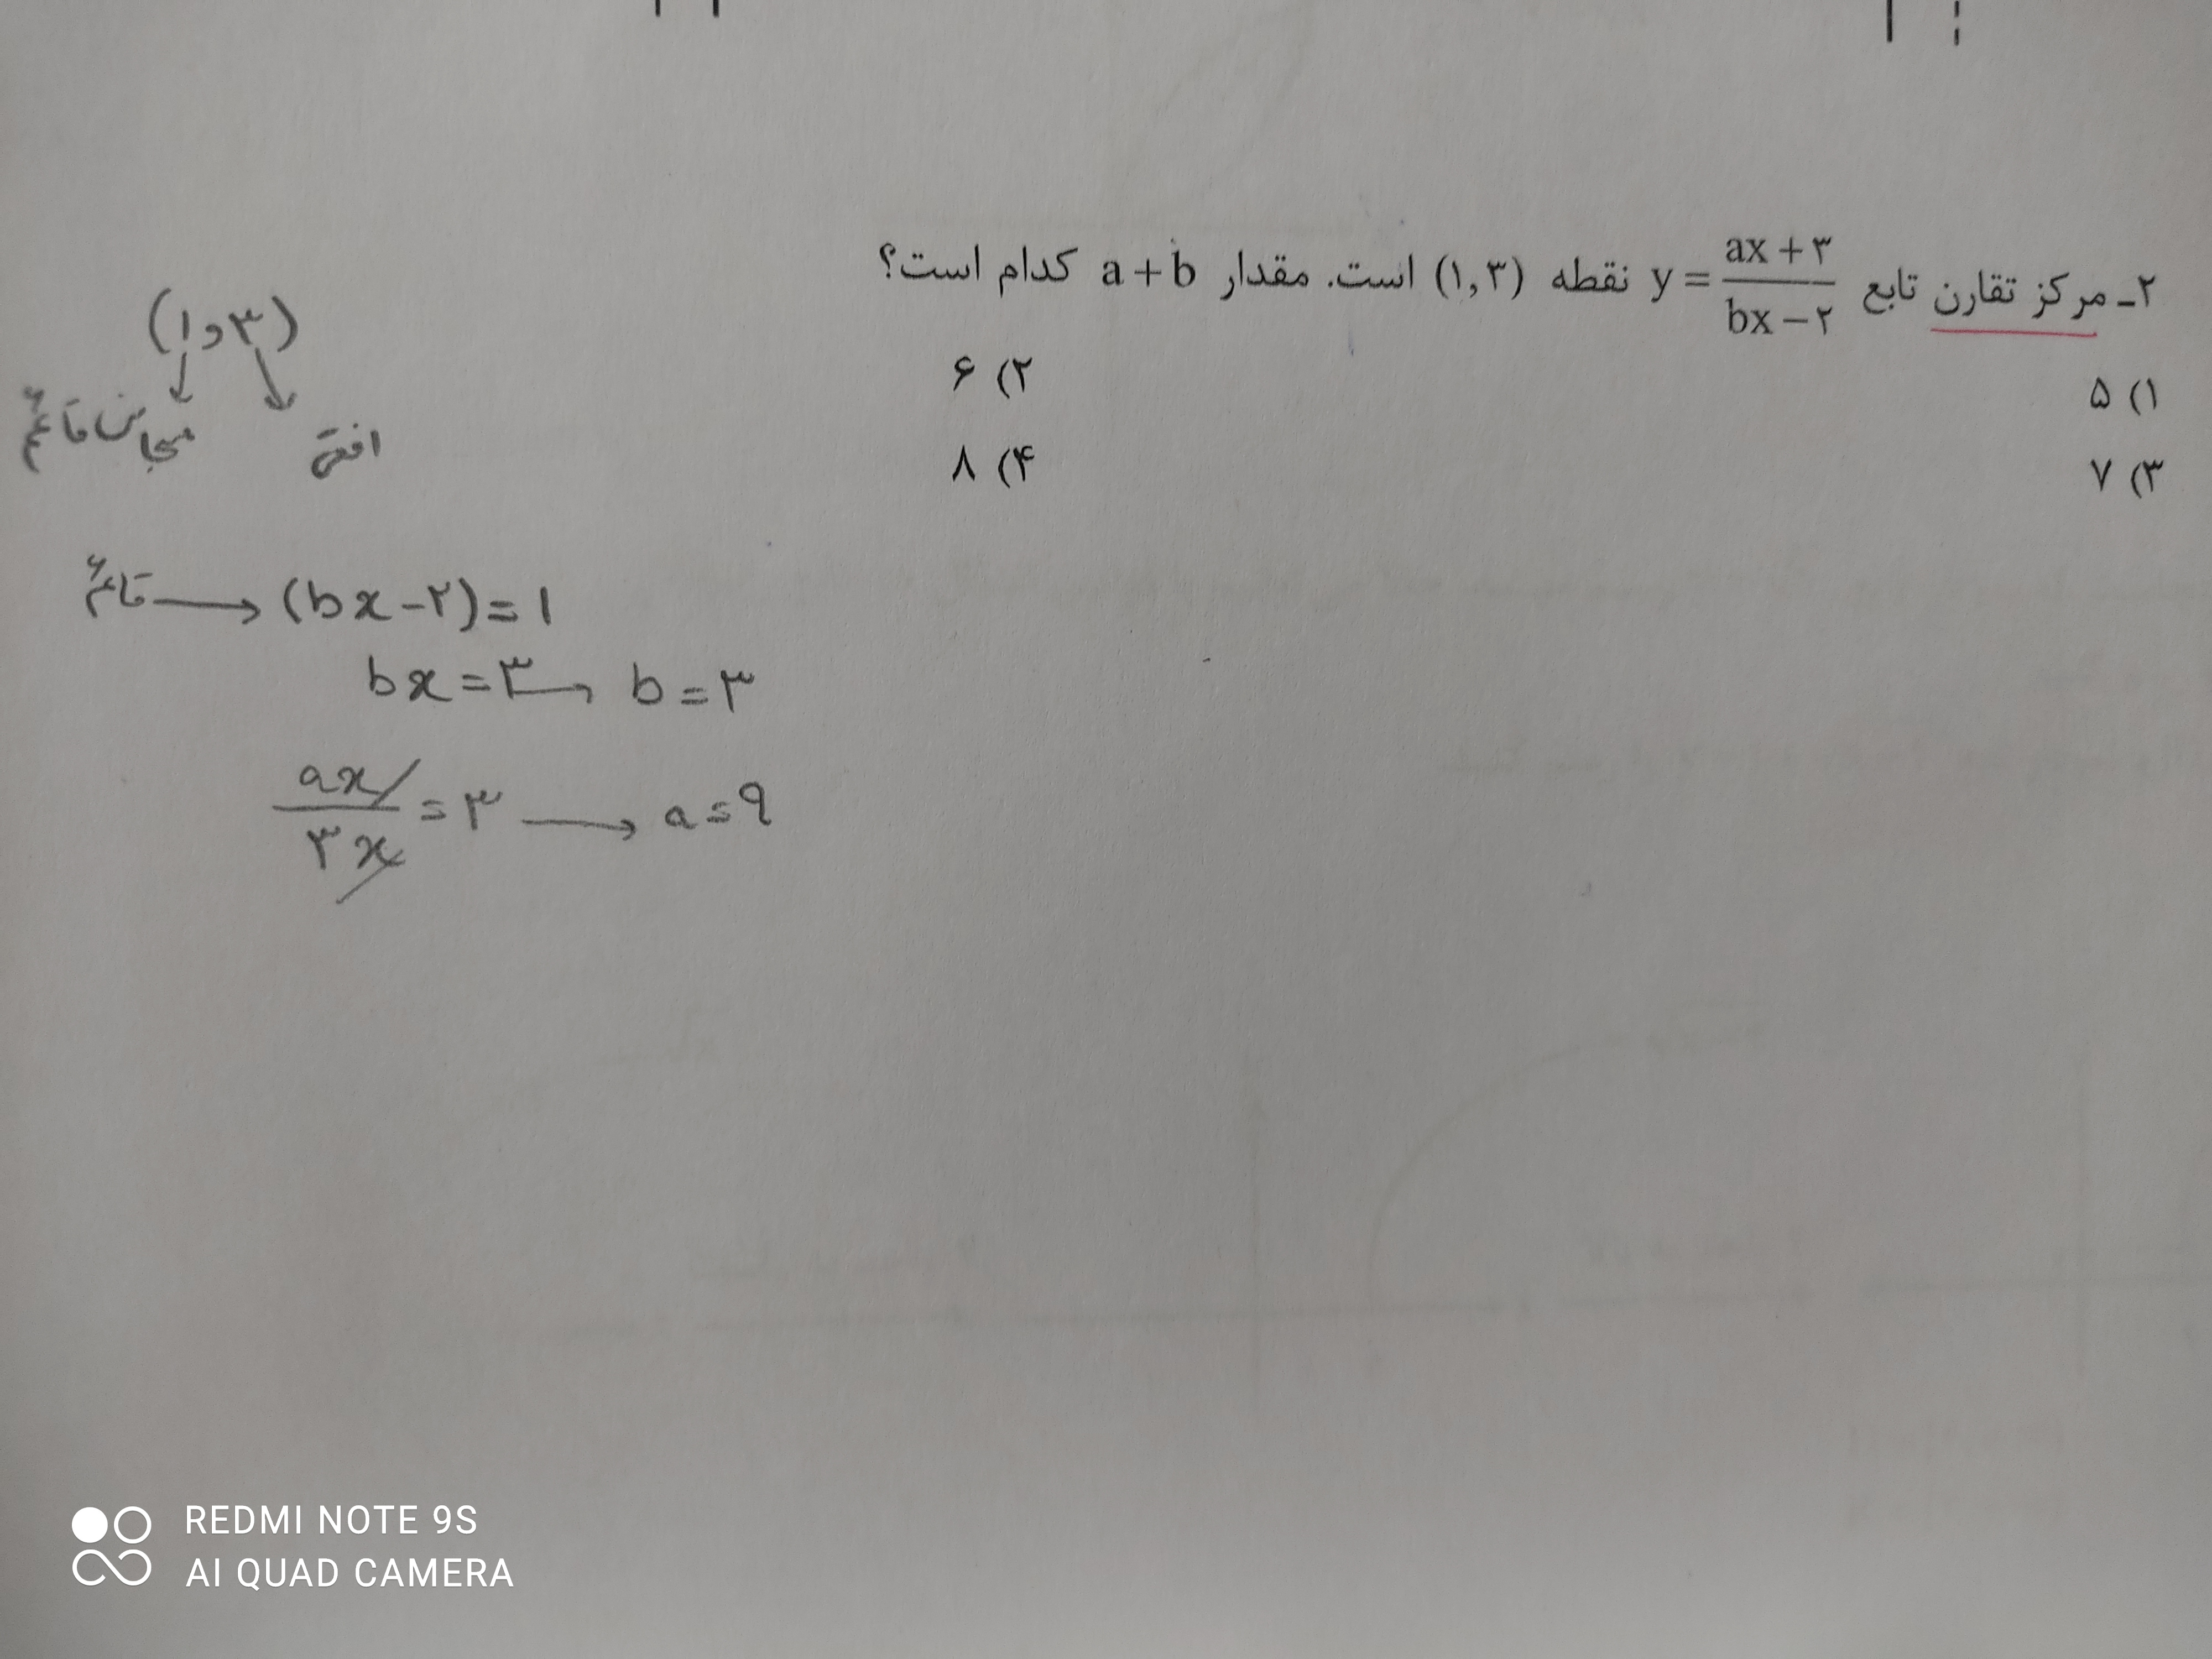 ۲ـ مرکز تقارن تابع y = (ax + ۳)/(bx − ۲) نقطه (۱, ۳) است. مقدار a + b کدام است؟
۱) ۵
۲) ۶
۳) ۷
۴) ۸
(۱ و ۳)
مجانب قائم
افقی
قائم → (bx − ۲) = ۱
bx = ۳ → b = ۳
ax/۳x = ۳ → a = ۹
REDMI NOTE 9S
AI QUAD CAMERA